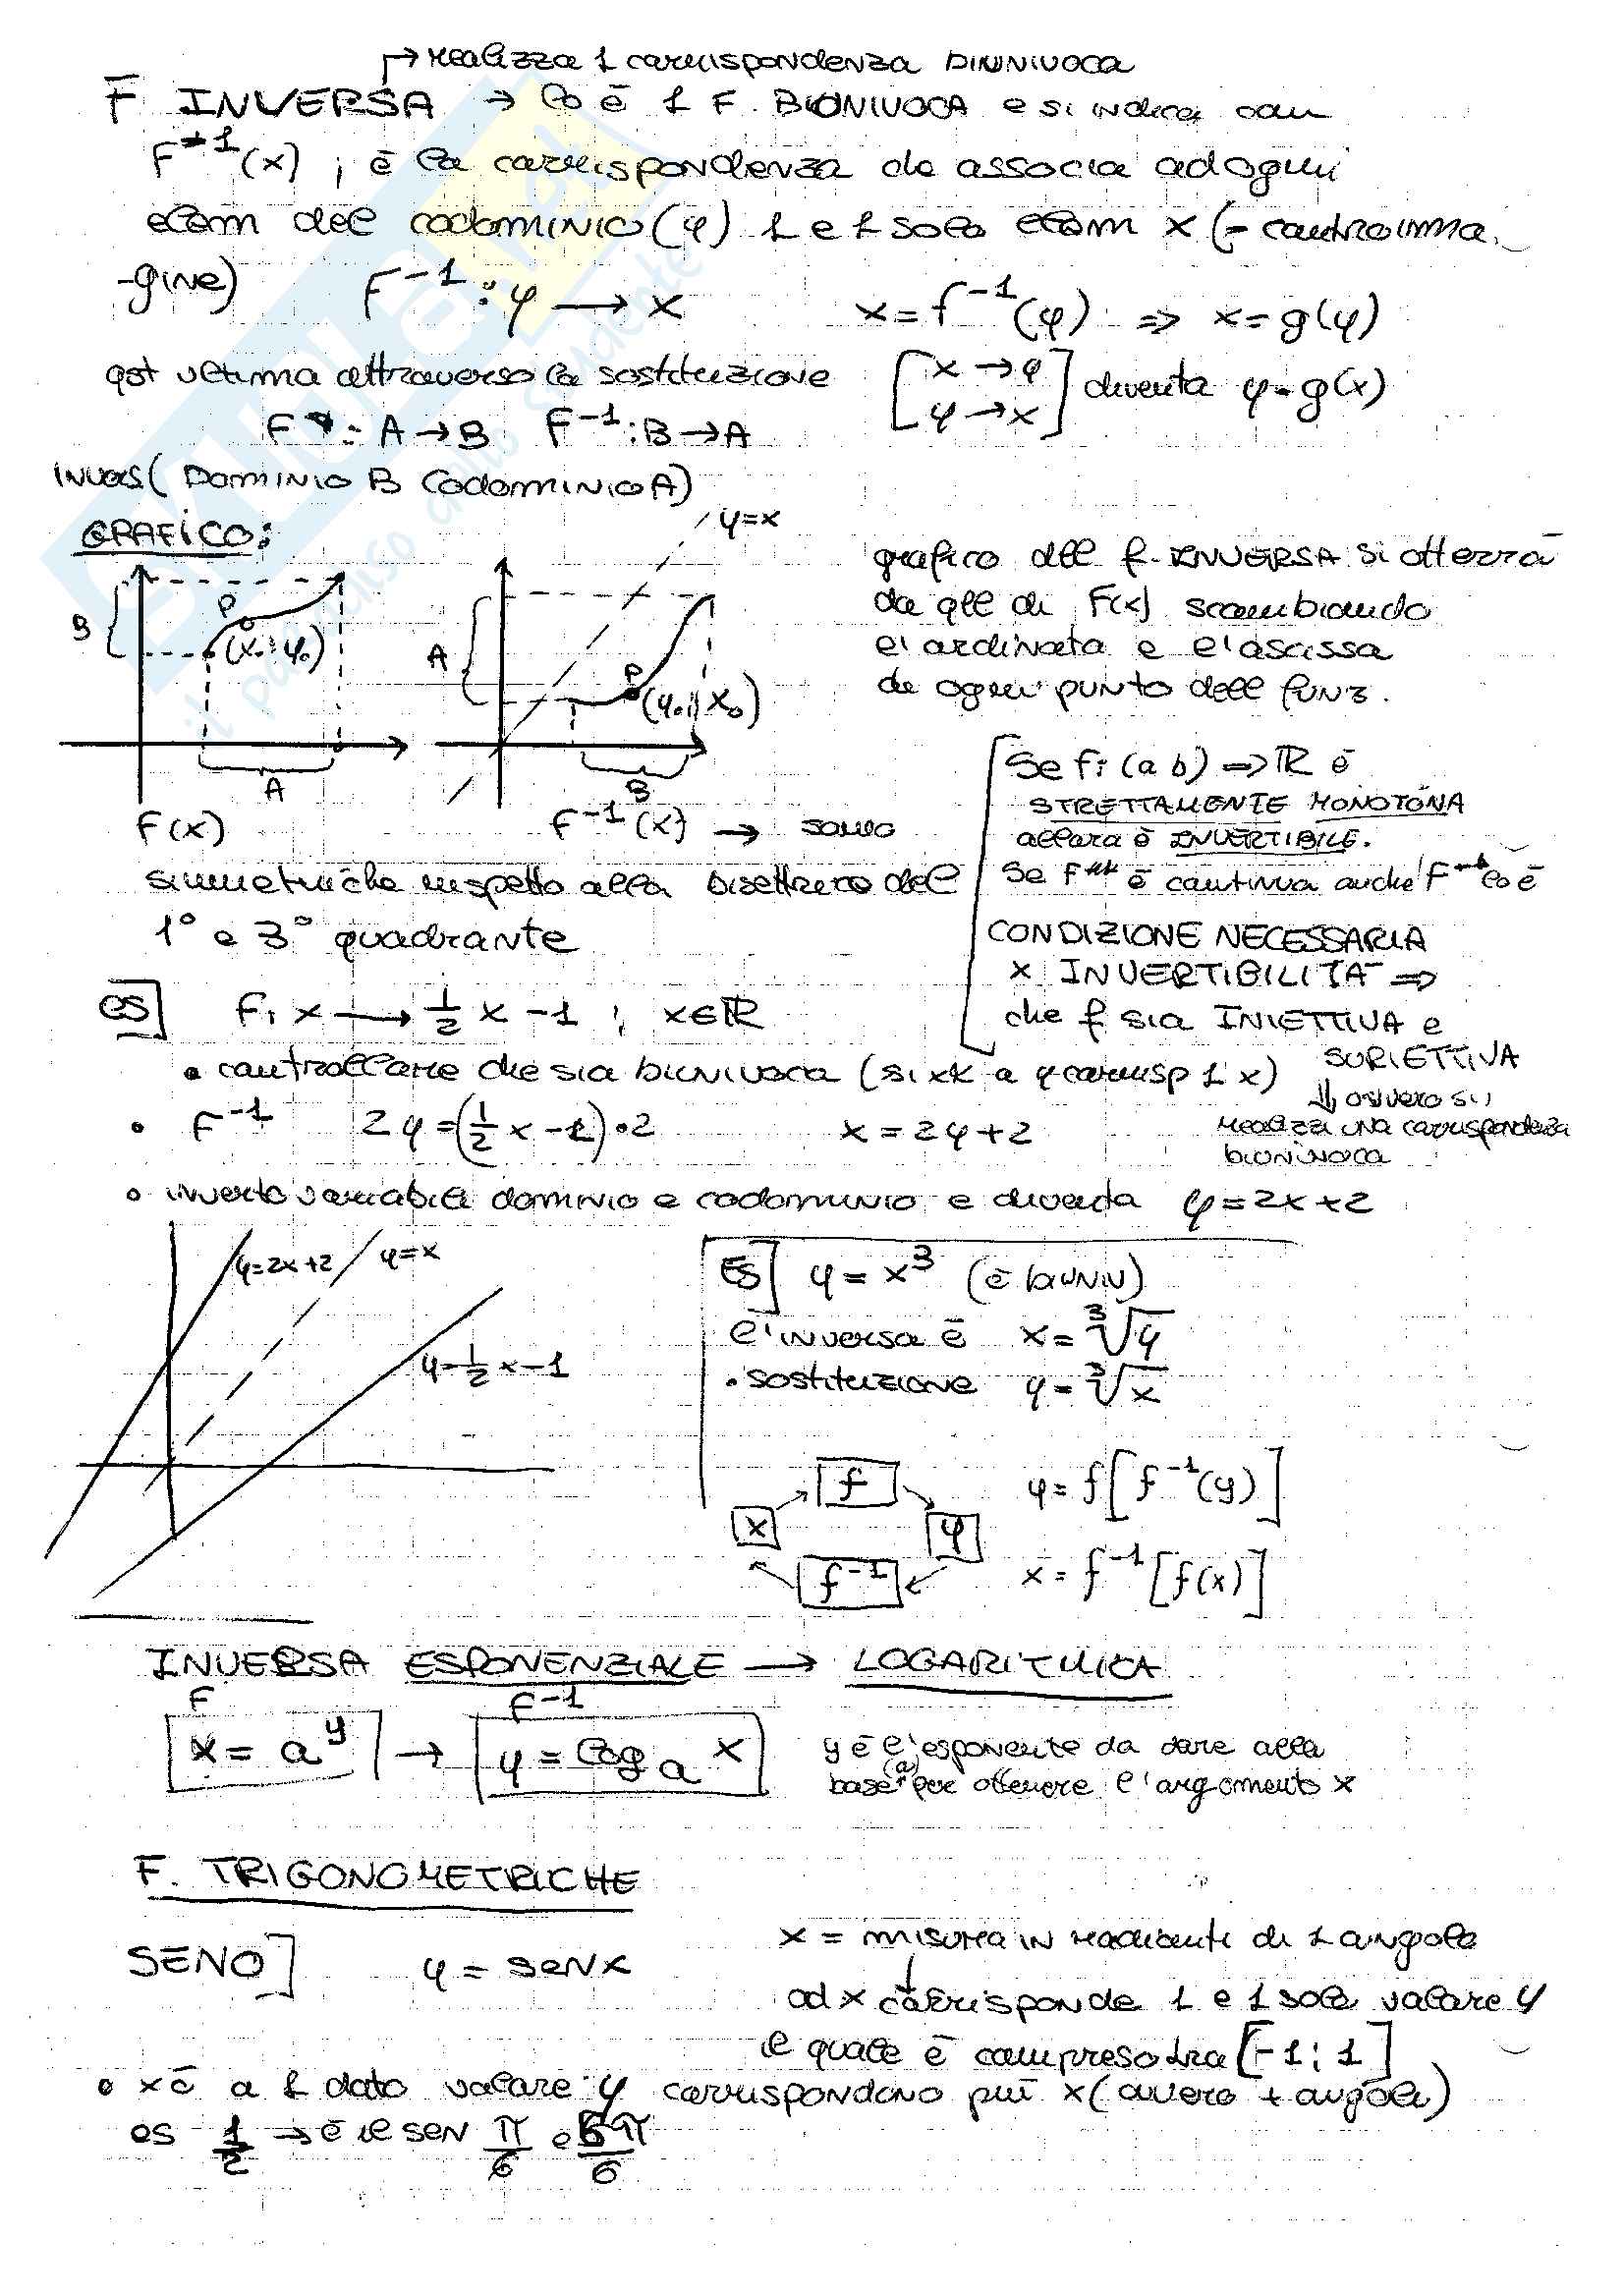 → realizza 1 corrispondenza BIUNIVOCA
F INVERSA → lo è 1 F. BIUNIVOCA e si indica con
F⁻¹(x) ; è la corrispondenza che associa ad ogni
elem del codominio (y) 1 e 1 solo elem x (= controimma
-gine) F⁻¹: y → x x = f⁻¹(y) ⇒ x = g(y)
qst ultima attraverso la sostituzione [x → y
y → x] diventa y = g(x)
F : A → B F⁻¹: B → A
INVERS (DOMINIO B CODOMINIO A)
GRAFICO:
y=x
B P (x₀; y₀) A
A P (y₀; x₀) B
F(x) F⁻¹(x) → sono
simmetriche rispetto alla bisettrice del
1° e 3° quadrante
grafico dell f. INVERSA si otterrà
da qll di F(x) scambiando
l'ordinata e l'ascissa
di ogni punto dell funz.
Se f: (a b) ⇒ ℝ è
STRETTAMENTE MONOTONA
allora è INVERTIBILE.
Se F è continua anche F⁻¹ lo è
CONDIZIONE NECESSARIA
x INVERTIBILITÀ ⇒
che f sia INIETTIVA e
SURIETTIVA
⇓ ovvero si
realizzi una corrispondenza
biunivoca
es] F: x → 1/2 x - 1 ; x∈ℝ
• controllare che sia biunivoca (si xk a y corrisp 1 x)
• F⁻¹ 2y = (1/2 x - 1)•2 x = 2y+2
• inverto variabili dominio e codominio e diventa y = 2x+2
y=2x+2 y=x
y=1/2 x-1
ES] y = x³ (è biuniv)
l'inversa è x = ³√y
• sostituzione y = ³√x
f
x y
f⁻¹
y = f[f⁻¹(y)]
x = f⁻¹[f(x)]
INVERSA ESPONENZIALE → LOGARITMICA
F F⁻¹
x = a^y → y = logₐ x
y è l'esponente da dare alla
base (a) per ottenere l'argomento x
F. TRIGONOMETRICHE
SENO] y = senx
x = misura in radianti di 1 angolo
↓
ad x corrisponde 1 e 1 solo valore y
il quale è compreso tra [-1; 1]
• xè a 1 dato valore y corrispondono più x (ovvero + angoli)
es 1/2 → è il sen π/6 e 5π/6